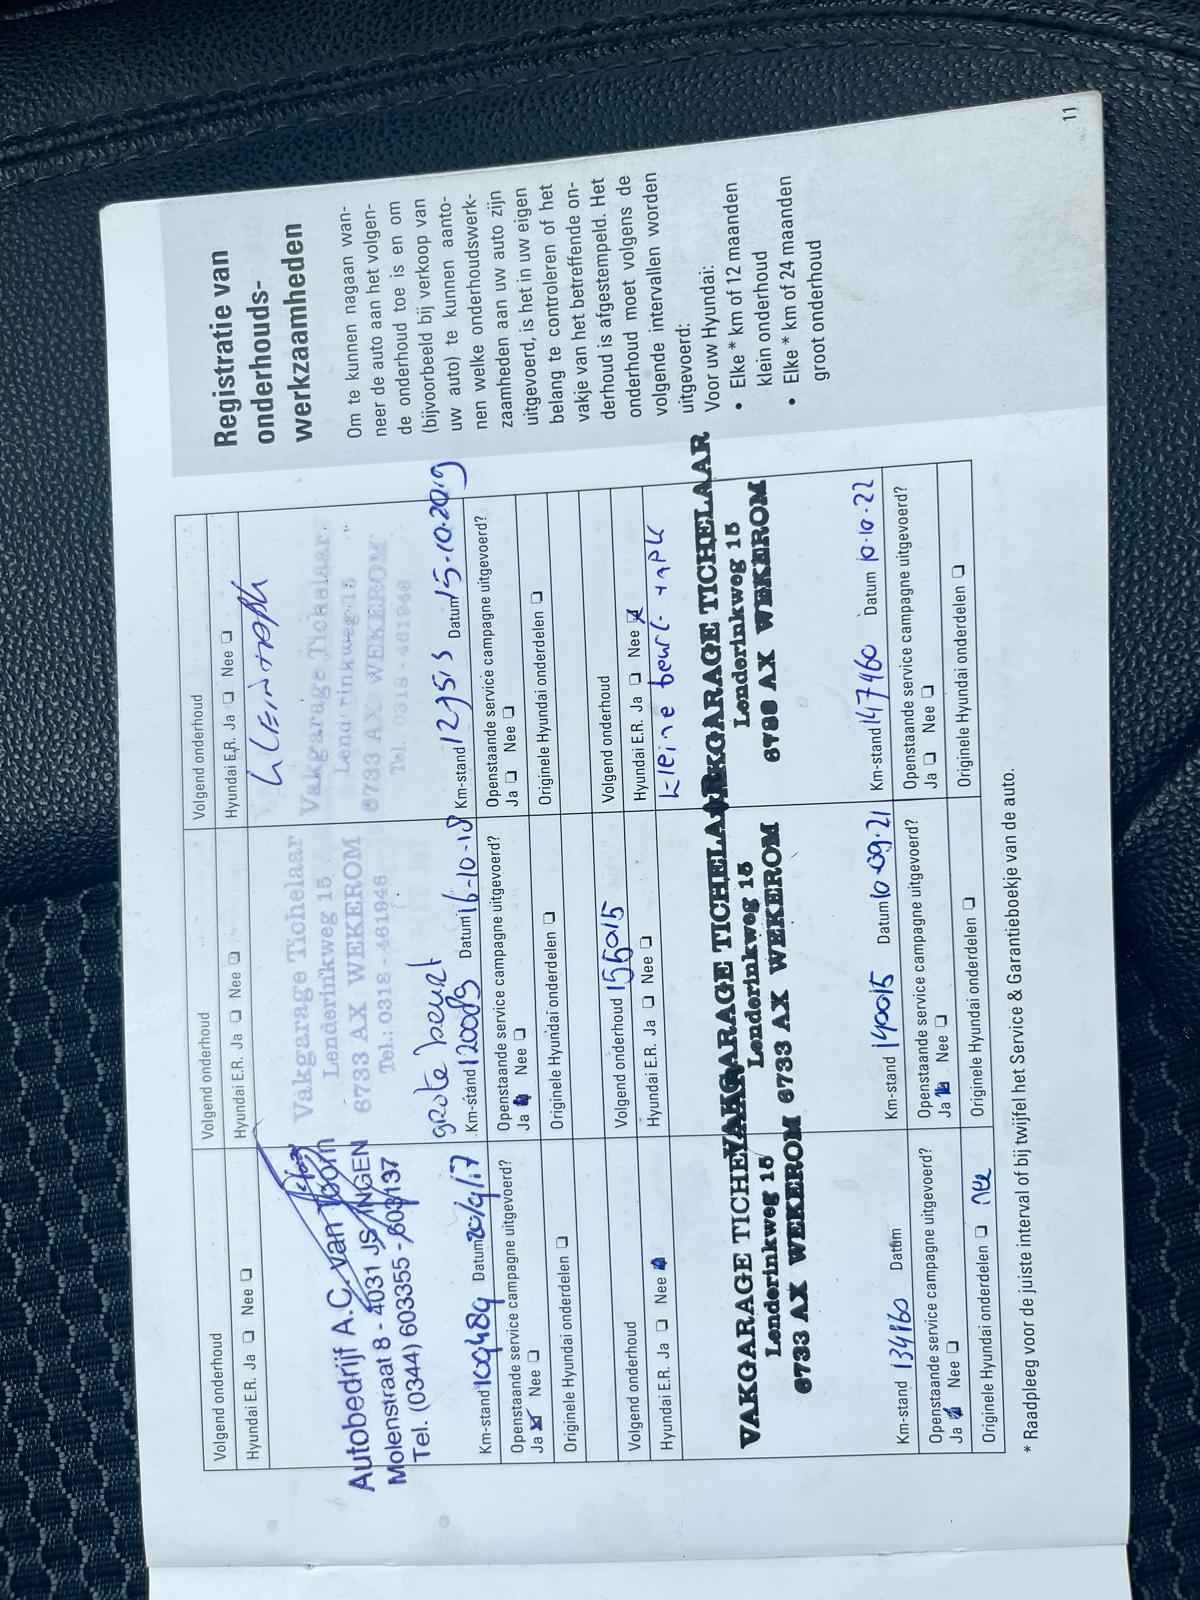 Volgend onderhoud
Hyundai E.R. Ja ❑ Nee ❑
Autobedrijf A.C. van Toorn
Molenstraat 8 - 4031 JS INGEN
Tel. (0344) 603355 - 603137
Km-stand 109489 Datum 20/9/17
Openstaande service campagne uitgevoerd?
Ja ☒ Nee ❑
Originele Hyundai onderdelen ❑
Volgend onderhoud
Hyundai E.R. Ja ❑ Nee ❑
Vakgarage Tichelaar
Lenderinkweg 15
6733 AX WEKEROM
Tel.: 0318 - 461946
grote beurt
Km-stand 120089 Datum 16-10-18
Openstaande service campagne uitgevoerd?
Ja ☒ Nee ❑
Originele Hyundai onderdelen ❑
Volgend onderhoud
Hyundai E.R. Ja ❑ Nee ❑
Vakgarage Tichelaar
Lenderinkweg 15
6733 AX WEKEROM
Tel. 0318 - 461946
Km-stand 129513 Datum 15-10-2019
Openstaande service campagne uitgevoerd?
Ja ❑ Nee ❑
Originele Hyundai onderdelen ❑
Volgend onderhoud
Hyundai E.R. Ja ❑ Nee ☒
VAKGARAGE TICHELAAR
Lenderinkweg 15
6733 AX WEKEROM
Km-stand 134160 Datum
Openstaande service campagne uitgevoerd?
Ja ☒ Nee ❑
Originele Hyundai onderdelen ❑ nee
Volgend onderhoud 155015
Hyundai E.R. Ja ❑ Nee ❑
VAKGARAGE TICHELAAR
Lenderinkweg 15
6733 AX WEKEROM
Km-stand 140015 Datum 10-09-21
Openstaande service campagne uitgevoerd?
Ja ☒ Nee ❑
Originele Hyundai onderdelen ❑
Volgend onderhoud
Hyundai E.R. Ja ❑ Nee ☒
kleine beurt + apk
VAKGARAGE TICHELAAR
Lenderinkweg 15
6733 AX WEKEROM
Km-stand 147460 Datum 10-10-22
Openstaande service campagne uitgevoerd?
Ja ❑ Nee ❑
Originele Hyundai onderdelen ❑
* Raadpleeg voor de juiste interval of bij twijfel het Service & Garantieboekje van de auto.
Registratie van
onderhouds-
werkzaamheden
Om te kunnen nagaan wan-
neer de auto aan het volgen-
de onderhoud toe is en om
(bijvoorbeeld bij verkoop van
uw auto) te kunnen aanto-
nen welke onderhoudswerk-
zaamheden aan uw auto zijn
uitgevoerd, is het in uw eigen
belang te controleren of het
vakje van het betreffende on-
derhoud is afgestempeld. Het
onderhoud moet volgens de
volgende intervallen worden
uitgevoerd:
Voor uw Hyundai:
• Elke * km of 12 maanden
klein onderhoud
• Elke * km of 24 maanden
groot onderhoud
11